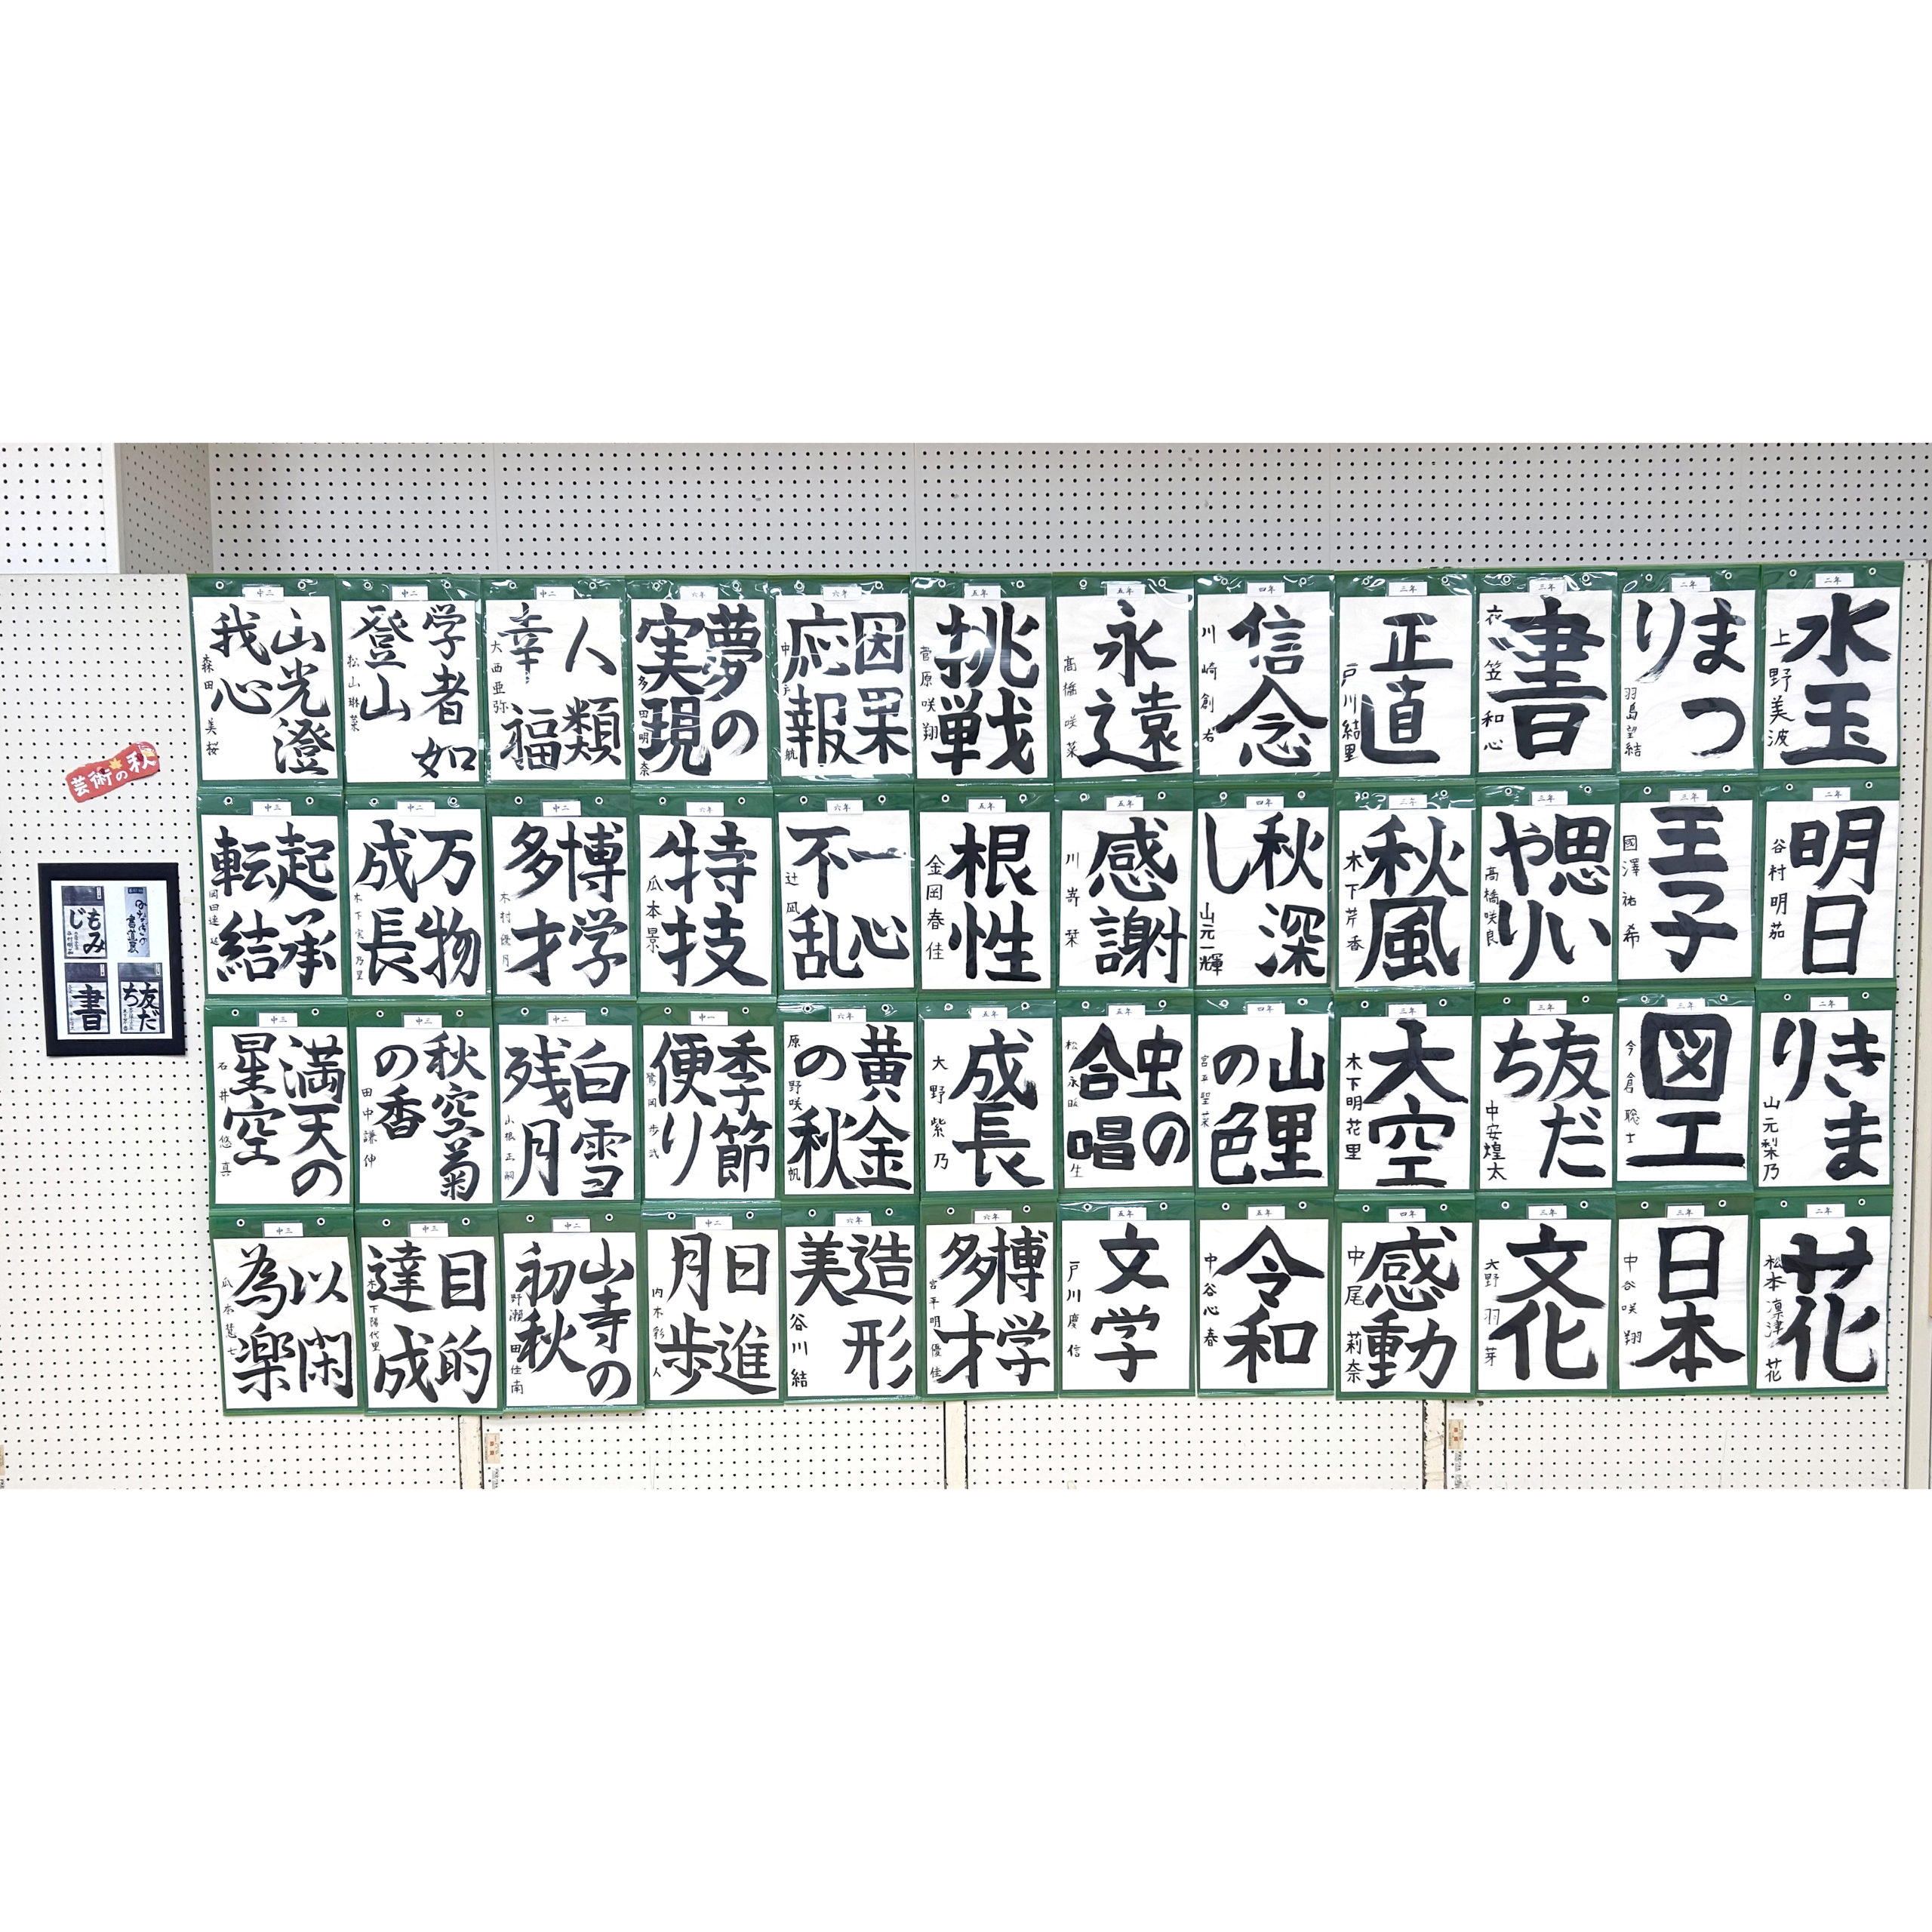 二年
水玉
上野美波
二年
明日
谷村明茄
二年
きま
り
山元梨乃
二年
花
松本凛津花
二年
まつ
り
羽島望結
三年
王子
國澤祐希
三年
図工
今倉聡士
三年
日本
中谷咲翔
三年
書
衣笠和心
三年
思い
やり
高橋咲良
三年
友だ
ち
中安煌太
三年
文化
大野羽芽
三年
正直
戸川結里
三年
秋風
木下芹香
三年
大空
木下明花里
四年
感動
中尾莉奈
四年
信念
川崎創右
四年
秋深
し
山元一輝
四年
山里
の色
宮平聖菜
五年
令和
中谷心春
五年
永遠
髙橋咲菜
五年
感謝
川嵜栞
五年
虫の
合唱
五年
文学
戸川慶信
五年
挑戦
菅原咲翔
五年
根性
金岡春佳
五年
成長
大野紫乃
六年
博学
多才
宮平明優佳
六年
因果
応報
六年
一心
不乱
辻凪
六年
黄金
の秋
原野咲帆
六年
造形
美
谷川結
六年
夢の
実現
多田明奈
六年
特技
瓜本景
中一
季節
便り
中二
日進
月歩
内木彩人
中二
人類
幸福
大西亜弥
中二
博学
多才
木村優月
中二
白雪
残月
山根正嗣
中二
山寺の
初秋
野瀬田佳南
中二
学者如
登山
松山琳菜
中二
万物
成長
木下実乃里
中三
秋空菊
の香
田中謙伸
中三
目的
達成
木下陽代里
中三
山光澄
我心
森田美桜
中三
起承
転結
中三
満天の
星空
石井悠真
中三
以閑
為楽
瓜本慧七
芸術の秋
もみ
じ
友だ
ち
書